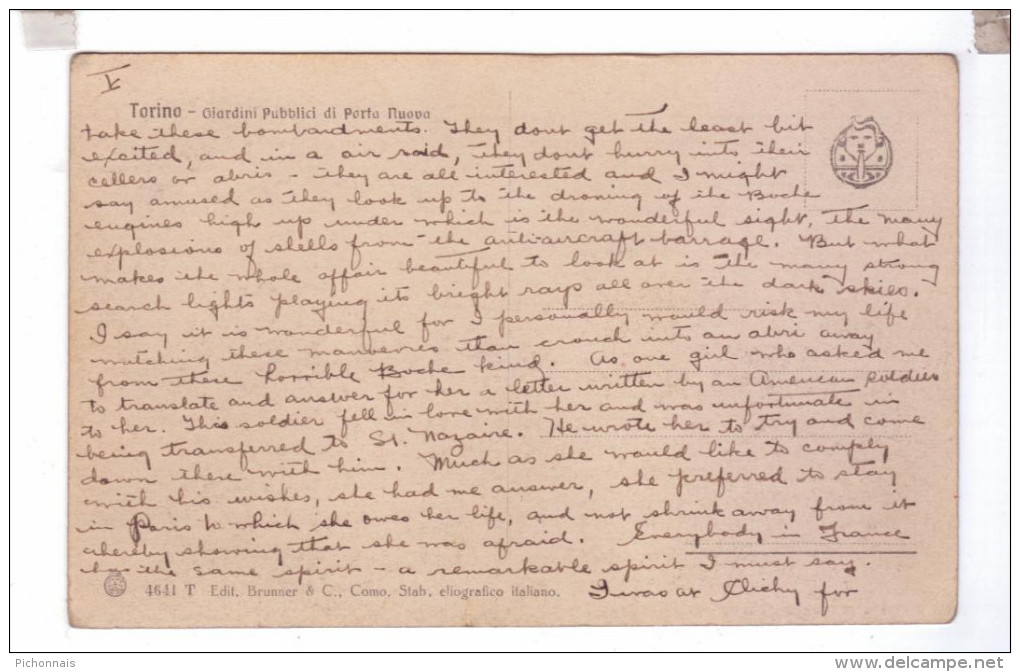 V
Torino - Giardini Pubblici di Porta Nuova
take these bombardments. They dont get the least bit
excited, and in a air raid, they dont hurry into their
cellers or abris - they are all interested and I might
say amused as they look up to the droning of the Boche
engines high up under which is the wonderful sight, the many
explosions of shells from the antiaircraft barrage. But what
makes the whole affair beautiful to look at is the many strong
search lights playing its bright rays all over the dark skies.
I say it is wonderful for I personally would risk my life
watching these manuevres than crouch into an abri away
from these horrible Boche kind. As one girl who asked me
to translate and answer for her a letter written by an American soldier
to her. This soldier fell in love with her and was unfortunate in
being transferred to St. Nazaire. He wrote her to try and come
down there with him. Much as she would like to comply
with his wishes, she had me answer, she preferred to stay
in Paris to which she owes her life, and not shrink away from it
whereby showing that she was afraid. Everybody in France
has the same spirit - a remarkable spirit I must say.
I was at Clichy for
4641 T Edit. Brunner & C., Como. Stab. eliografico italiano.
Pichonnais
www.delcampe.net